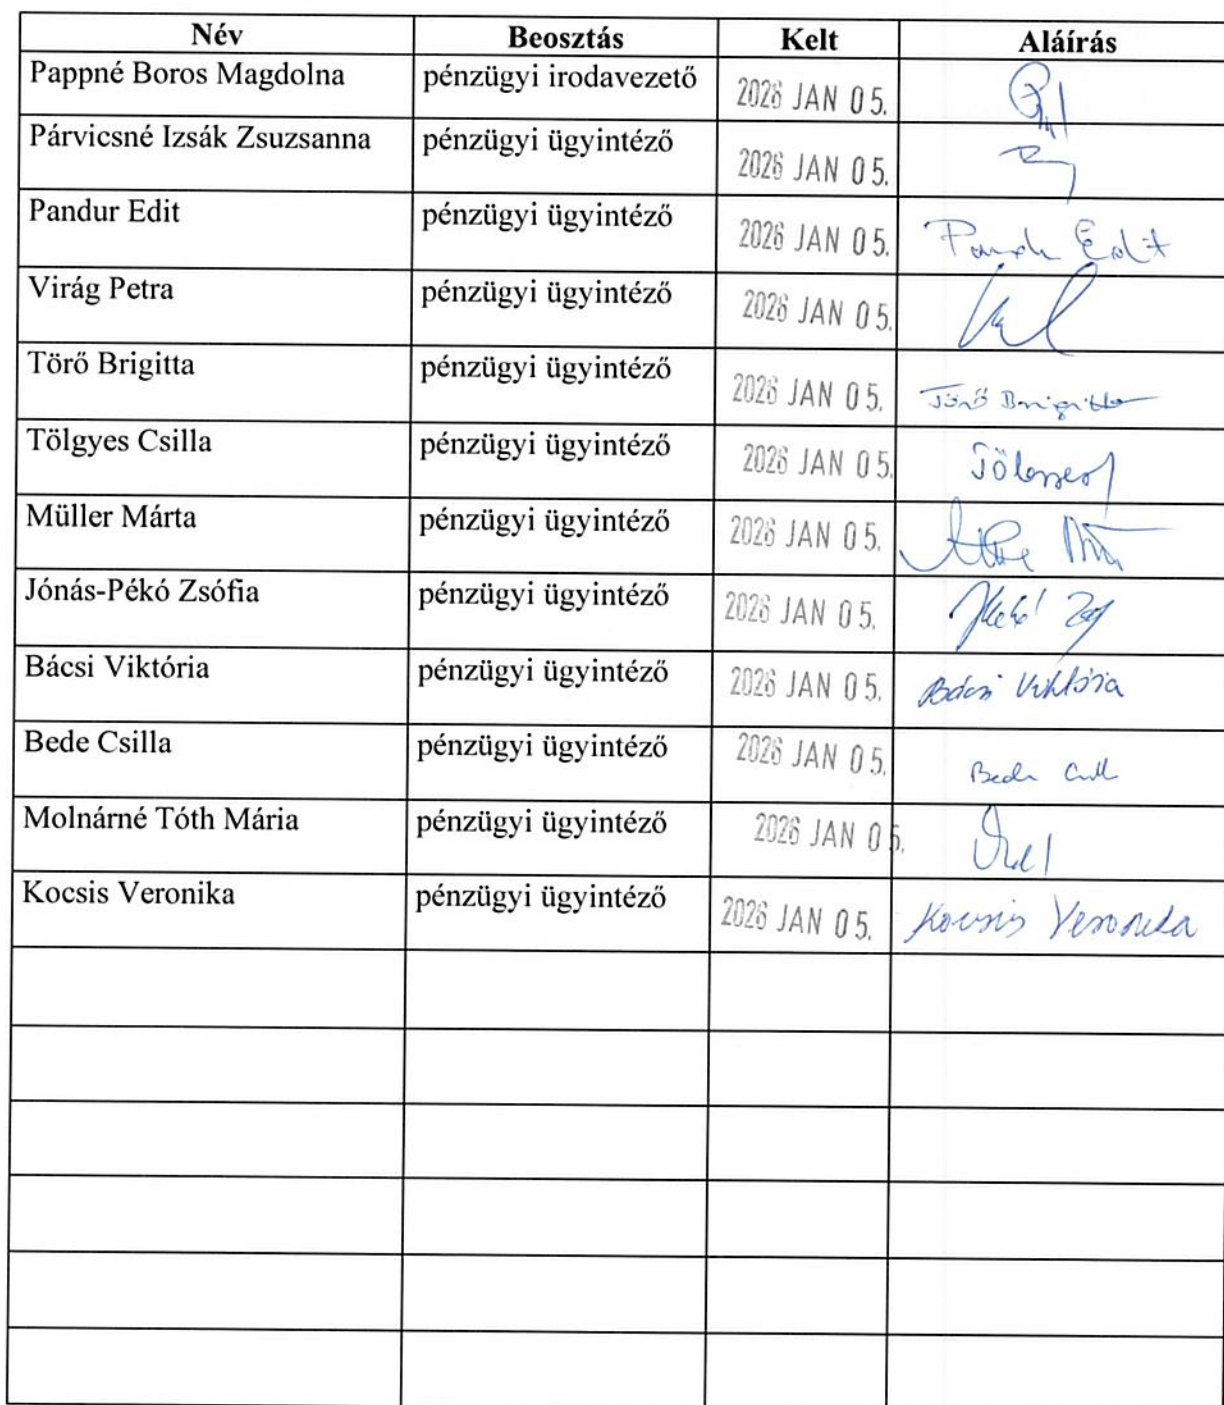 Név Beosztás Kelt Aláírás
Pappné Boros Magdolna pénzügyi irodavezető 2026 JAN 05.
Párvicsné Izsák Zsuzsanna pénzügyi ügyintéző 2026 JAN 05.
Pandur Edit pénzügyi ügyintéző 2026 JAN 05. Edit
Virág Petra pénzügyi ügyintéző 2026 JAN 05.
Törő Brigitta pénzügyi ügyintéző 2026 JAN 05. Törő Brigitta
Tölgyes Csilla pénzügyi ügyintéző 2026 JAN 05.
Müller Márta pénzügyi ügyintéző 2026 JAN 05.
Jónás-Pékó Zsófia pénzügyi ügyintéző 2026 JAN 05.
Bácsi Viktória pénzügyi ügyintéző 2026 JAN 05. Bácsi Viktória
Bede Csilla pénzügyi ügyintéző 2026 JAN 05. Bede
Molnárné Tóth Mária pénzügyi ügyintéző 2026 JAN 05.
Kocsis Veronika pénzügyi ügyintéző 2026 JAN 05. Kocsis Veronika